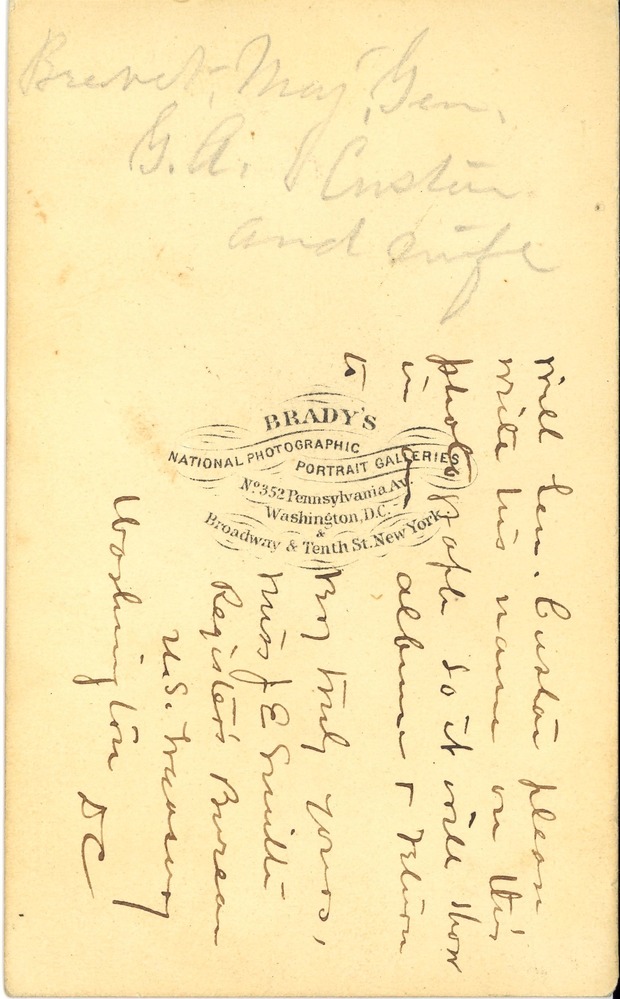 Brevet, Maj, Gen,
G. A. Custer
and wife
BRADY'S
NATIONAL PHOTOGRAPHIC
PORTRAIT GALLERIES
No 352 Pennsylvania Av.
Washington, D.C.
&
Broadway & Tenth St. New York
Will Gen. Custer please
write his name on this
photograph so it will show
in an album & return
to
truly yours,
Miss J E Smith
Register's Bureau
U.S. Treasury
Washington DC